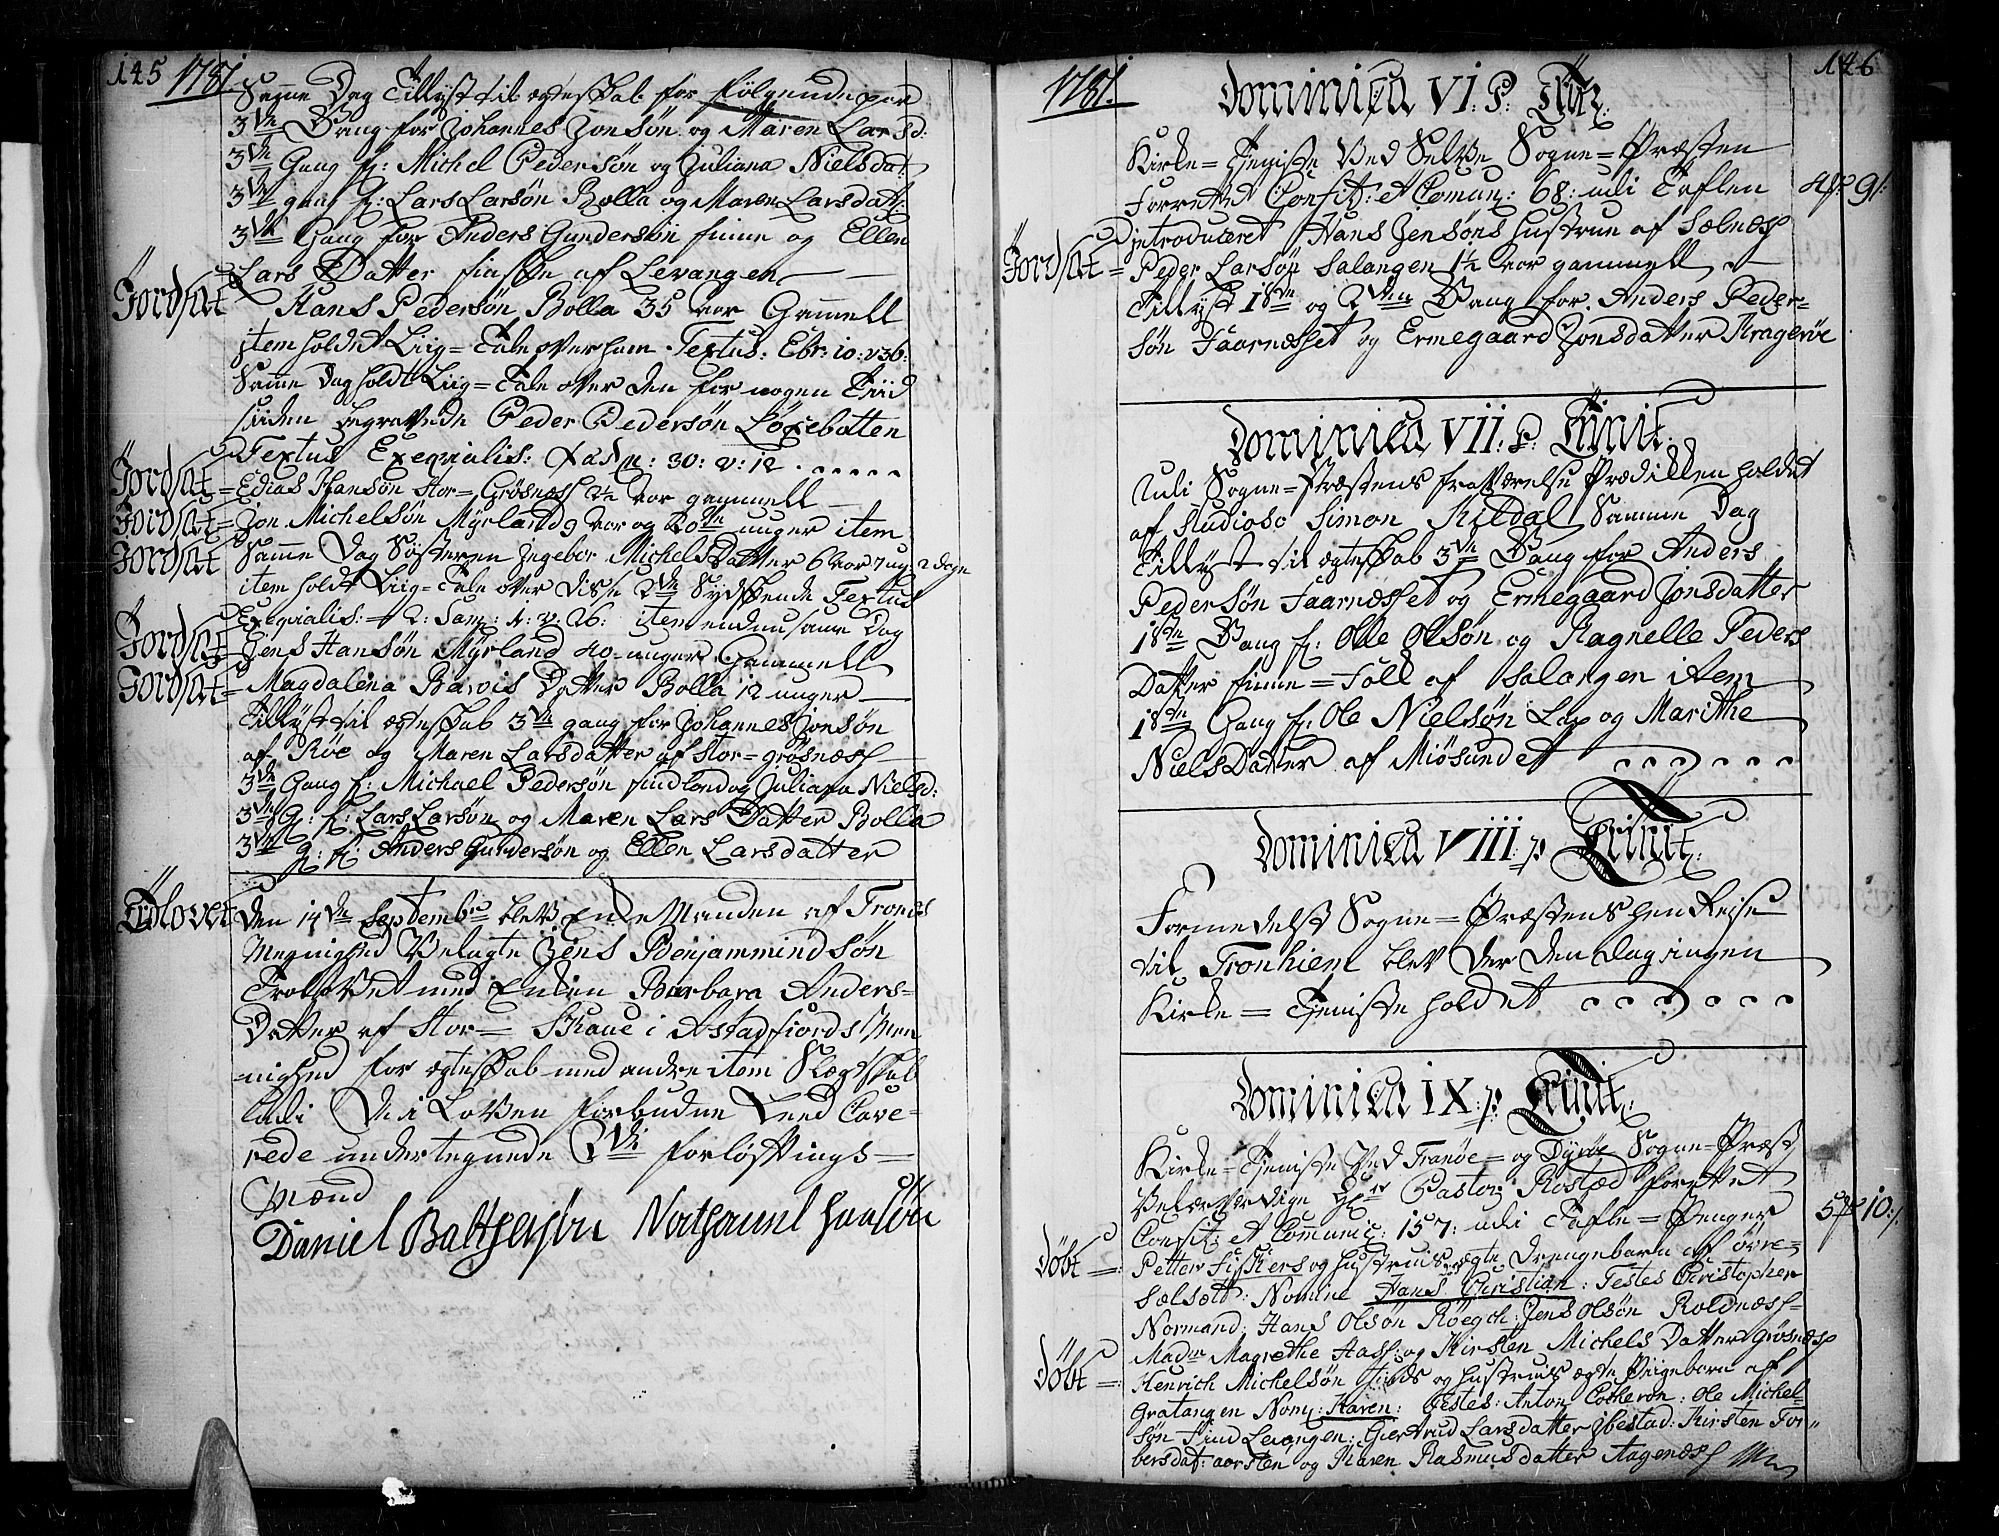 145 1781
Samme Dag Tillyst til ægteskab for følgende par
3die Gang for Johannes Jonsøn og Maren Larsd:
3die Gang f: Michel Pedersøn og Juliana Nielsdat
3die gang f: Lars Larsøn Bolla og Maren Larsdat:
3die Gang for Anders Gundersøn finne og Ellen
Lars Datter finske af Levangen
Jordsat Hans Pedersøn Bolla 35 aar Gammell
item holdet Liig=Tale over ham. Textus: Ebr: 10: v 36:
Samme Dag holdt Liig=Tale over den for nogen Tiid
siiden begravede Peder Pedersøn Løxebotten
Textus Exeqvialis: Psalm: 30: v: 12.
Jordsat= Edias Hansøn Stor=Grøsnæss 2½ aar gammell
Jordsat= Jon Michelsøn Myrland 9 aar og 20de uuger item
Jordsat Samme Dag Søsteren Jngebor Michels Datter 6 aar 7 ug 2 dage
item holdt Liig=Tale over disse 2de Sydskende Textus
Exeqvialis: 2: Sam: 1: v: 26: item endnu same Dag
Jordsat= Jens Hansøn Myrland 40 uuger Gammell
Jordsat= Magdalena Datter Bolla 12 uuger
Tillyst til ægteskab 3die gang for Johannes Jonsøn
af Røe og Maren Larsdatter af Stor=grøsnæss
3die Gang f: Michael Pedersøn findland og Juliana Nielsd:
3die G: f: Lars Larsøn og Maren Lars Datter Bolla
3die g: f: Anders Gundersøn og Ellen Larsdatter
Trolovet Den 14de Septembr blev Enke Manden af Trones
Meenighed Velagte Jens Benjammindsøn
Trolovet med Enken Barbara Anders=
Datter af Stor= i Astafiords Men
=nighed for ægteskab med andre item Slægtskab
udi De i Loven forbudne Leed Cave=
rede undertegnede 2de forlovnings=
Mænd
Daniel Balthersøn Nathanael Hansøn
1781. 146
Dominica VI: P: Trin:
Kirke=Tjeniste Ved Selve Sogne=Præsten
Forrettet Confit: et Comun: 68: udi Taflen 4 9
Jntroduceret Hans Jensøns hustrue af Sælnæss
Jordsat= Peder Larsøn Salangen 1½ aar gammell
Tillyst 1ste og 2den Gang for Anders Peder=
søn Faarnæsset og Ermegaard Jonsdatter Kragerøe
Dominica VII: P: Trinit:
Udi Sogne=Præstens fraværelse Prædikken holdet
af Studioso Simon Kildal Samme Dag
Tillyst til ægteskab 3die Gang for Anders
Pedersøn Faarnæsset og Ermegaard Jonsdatter
1ste Gang f: Olle Olsøn og Ragnelle Peders
Datter finne=Foll af Salangen item
1ste Gang f: Ole Nielsøn Lap og Marithe
Niels Datter af Miøsundet
Dominica VIII: p Trinit:
Formedelst Sogne=Præstens hen Reise
til Tronhiem blev Der Den Dag ingen
Kirke=Tjeniste holdet
Dominica IX: p: Trinit:
Kirke=Tjeniste Ved Tranøe= og Dyrøe Sogne=Præst
Velærværdige Hr Pastor Rostad forettet
Confit: et Communic: 157: udi Tafle=Penger 5 10
Døbt= Petter Fiskers og hustrues ægte Drengebarn af øvre=
Sælsætt: Nomine Hans Christian: Testes Christopher
Normand: Hans Olsøn Røegch: Jens Olsøn Roldnæss=
Madm Magrethe Hass: og Kirsten Michels Datter Grøsnæss
Døbt= Henrich Michelsøn finds og hustrues ægte Piigebarn af
Gratangen Nom: Karen: Testes: Anton Cotheron: Ole Michel=
søn Find Levangen: Giertrud Larsdatter Jbestad: Kirsten Tor=
bersdat: aarsten og Maren Rasmusdatter Aagenæss